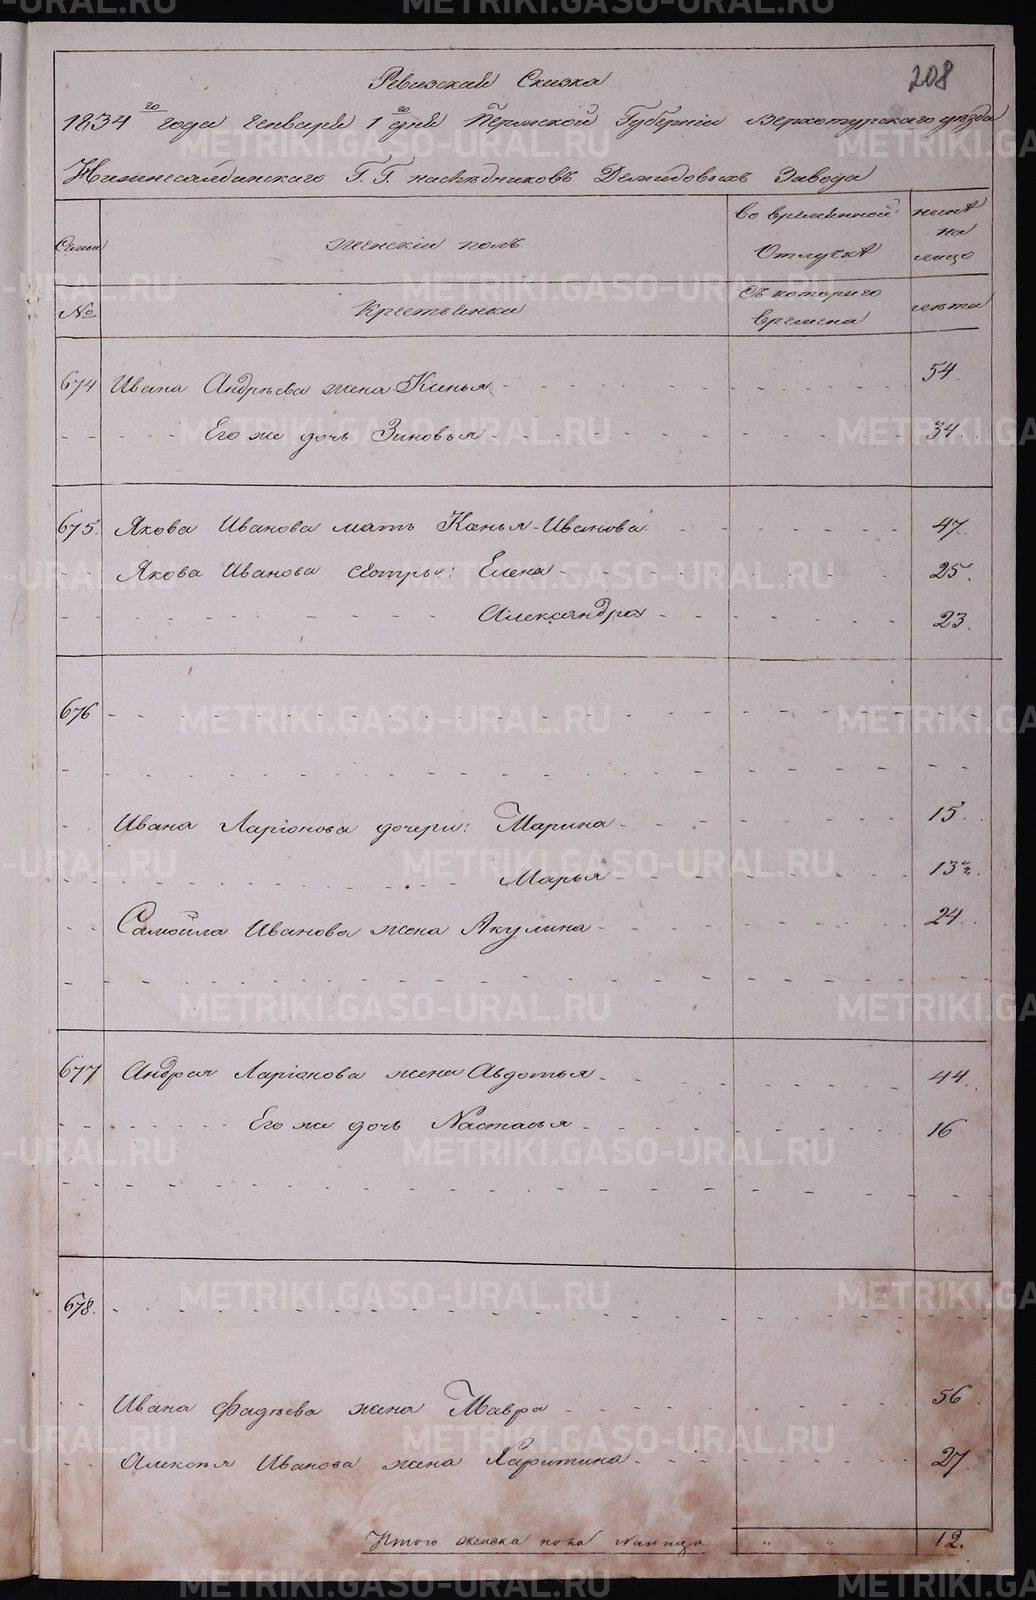 208
Ревизская Сказка
1834го года Генваря 1го дня Пермской Губерніи Верхотурскаго уѣзда
Нижнесалдинскаго Г. Г. наслѣдниковъ Демидовыхъ Завода
Семьи
женскій полъ
во временной Отлучкѣ
нынѣ на лицо
№
Крестьянки
Съ котораго времена
лѣта
674 Ивана Андрѣева жена Ксенья 54.
Его же дочь Зиновья 34.
675. Якова Иванова мать Ксенья Иванова 47.
Якова Иванова сестры: Елена 25.
Александра 23.
676
Ивана Ларіонова дочери: Марина 15.
Марья 13
Самойла Иванова жена Акулина 24.
677 Андрея Ларіонова жена Авдотья 44.
Его же дочь Настасья 16
678.
Ивана Фадѣева жена Мавра 56
Алексѣя Иванова жена Харитина 27.
Итого женска пола налицо " " 12.
METRIKI.GASO-URAL.RU